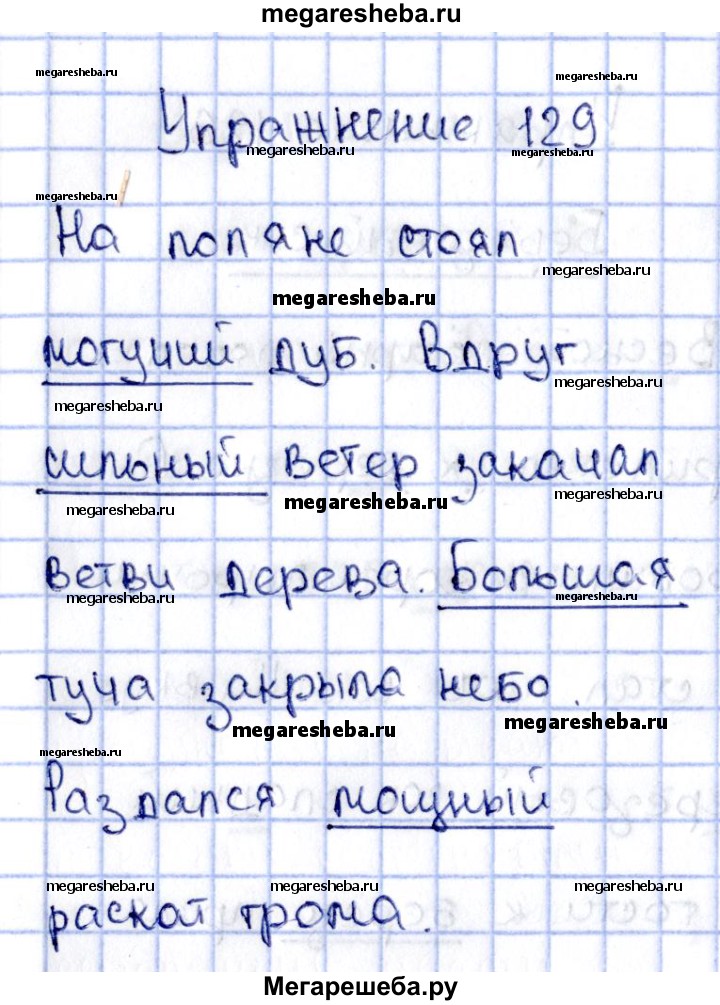 megaresheba.ru
megaresheba.ru
megaresheba.ru
Упражнение 129
megaresheba.ru
megaresheba.ru
megaresheba.ru
На поляне стоял
megaresheba.ru
megaresheba.ru
могучий дуб. Вдруг
megaresheba.ru
megaresheba.ru
сильный ветер закачал
megaresheba.ru
megaresheba.ru
megaresheba.ru
ветви дерева. Большая
megaresheba.ru
megaresheba.ru
туча закрыла небо.
megaresheba.ru
megaresheba.ru
megaresheba.ru
Раздался мощный
megaresheba.ru
megaresheba.ru
megaresheba.ru
раскат грома.
Мегарешеба.ру